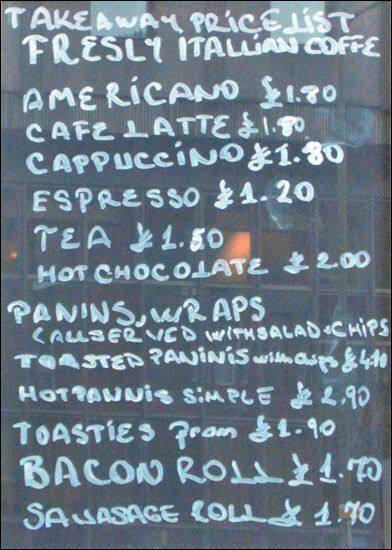 TAKEAWAY PRICE LIST
FRESLY ITALLIAN COFFE
AMERICANO £1.80
CAFE LATTE £1.80
CAPPUCCINO £1.80
ESPRESSO £1.20
TEA £1.50
HOT CHOCOLATE £2.00
PANINS, WRAPS
(ALLSERVED WITH SALAD+CHIPS
TOASTED PANINIS with chips £4.10
HOT PANNIS SIMPLE £2.90
TOASTIES From £1.90
BACON ROLL £1.70
SAUASAGE ROLL £1.70